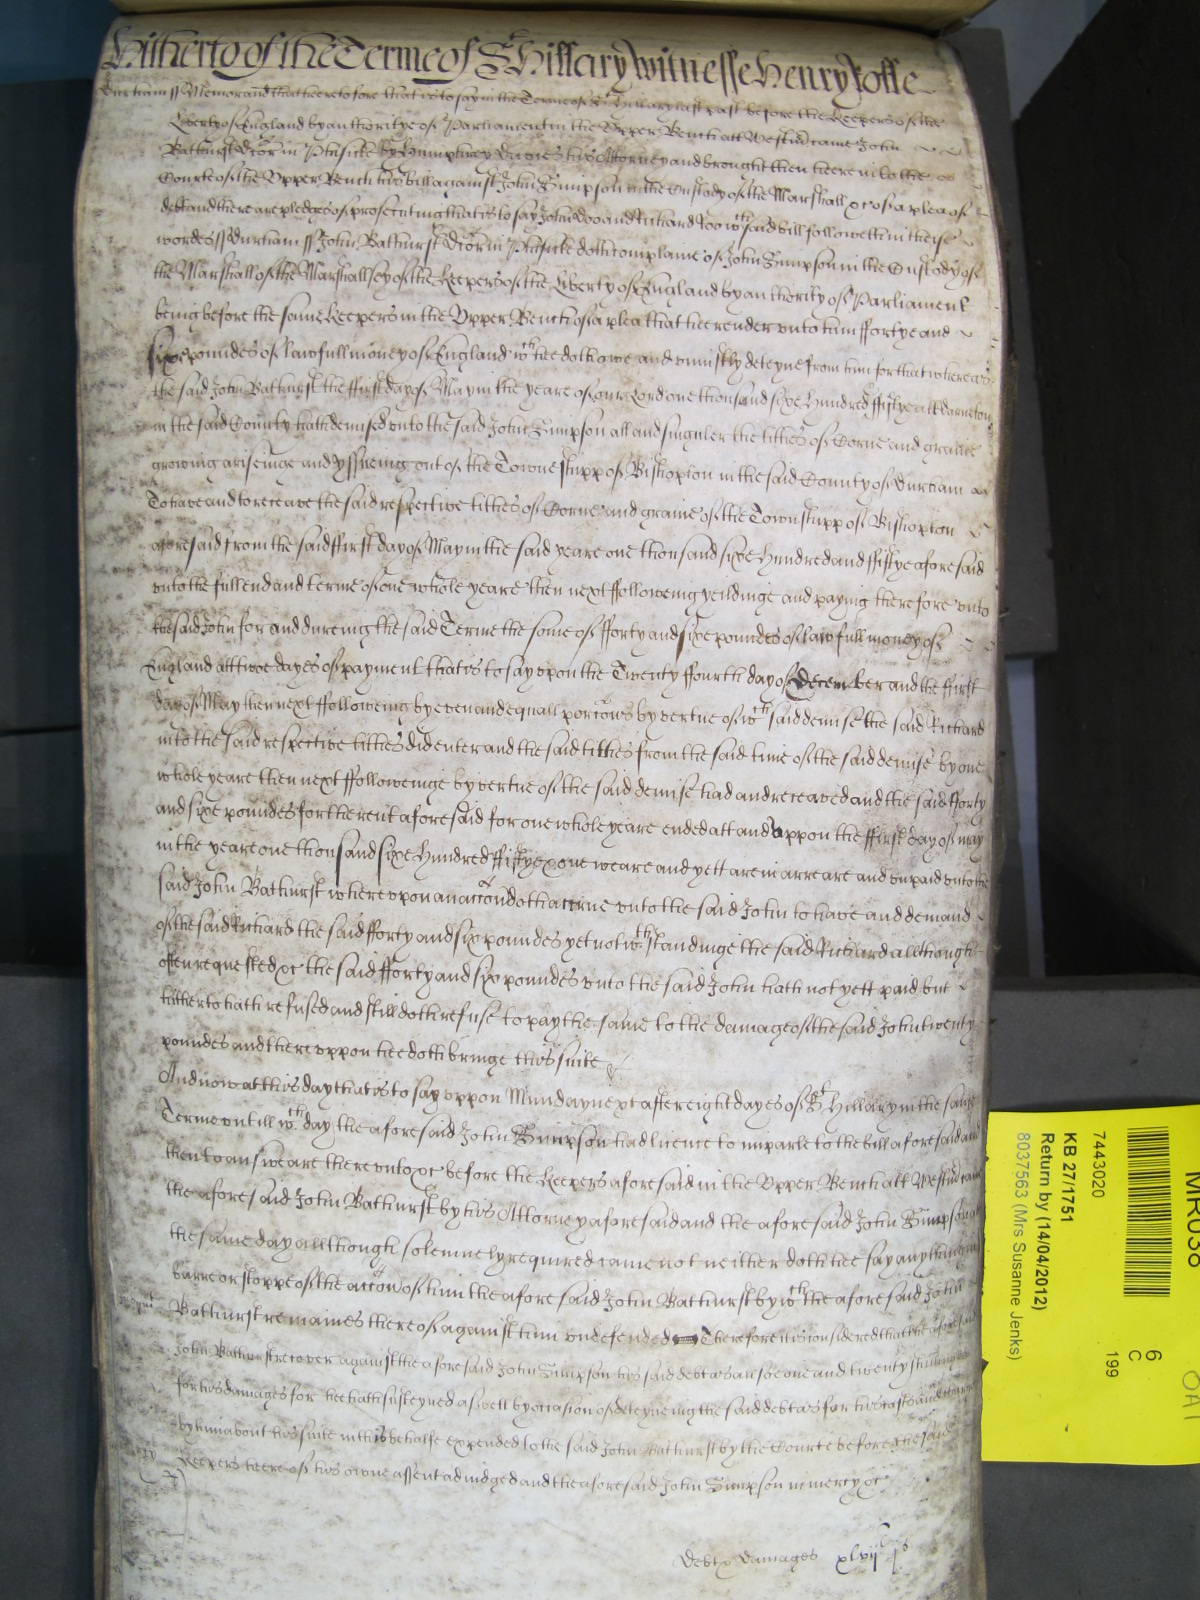 Hitherto of the Terme of St Hillary witnesse Henry Rolle
Durham ss Memorand that heretofore that is to say in the Terme of St Hillary last past before the Keepers of the
Liberty of England by authoritye of Parliament in the Upper Bench att Westm came John
Bathurst Dcor in Phisicke by Humphrey Davies his Attorney and brought then heere into the
Courte of the Upper Bench his bill against John Simpson in the Custody of the Marshall &c of a plea of
debt and there are pledges of prosecuting that is to say John Doo and Richard Roo wch said bill followeth in theise
wordes ss Durham ss John Bathurst Dcor in Phisicke doth complaine of John Simpson in the Custody of
the Marshall of the Marshallsey of the Keepers of the Liberty of England by authority of Parliament
being before the same Keepers in the Upper Bench of a plea that hee render unto him ffortye and
sixe poundes of lawfull money of England wch hee doth owe and uniustly deteyne from him for that whereas
the said John Bathurst the ffirst day of May in the yeare of our Lord one thousand sixe Hundred ffiftye att Darneton
in the said County hath demised unto the said John Simpson all and singuler the tithes of Corne and graine
growing ariseinge and yssueing out of the Towneshipp of Bishopton in the said County of Durham
To have and to receave the said respective tithes of Corne and graine of the Townshipp of Bishopton
aforesaid from the said ffirst day of May in the said yeare one thousand sixe Hundred and ffiftye aforesaid
unto the full end and terme of one whole yeare then next ffolloweing yeildinge and paying therefore unto
the said John for and dureing the said Terme the some of fforty and sixe poundes of lawfull money of
England att twoe dayes of payment that is to say upon the Twenty ffourth day of December and the ffirst
day of May then next ffolloweing by even and equall porcons by vertue of wch said demise the said Richard
into the said respective tithes did enter and the said tithes from the said time of the said demise by one
whole yeare then next ffolloweinge by vertue of the said demise had and receaved and the said fforty
and sixe poundes for the rent aforesaid for one whole yeare ended att and uppon the ffirst day of may
in the yeare one thousand sixe Hundred ffiftye & one weare and yett are in arreare and unpaid unto the
said John Bathurst whereupon an accon doth accrue unto the said John to have and demand
of the said Richard the said fforty and six poundes yet notwthstandinge the said Richard allthough
often requested &c the said fforty and six poundes unto the said John hath not yett paid but
hitherto hath refused and still doth refuse to pay the same to the damage of the said John twenty
poundes and thereuppon hee doth bringe this suite
And now att this day that is to say uppon Munday next after eight dayes of St Hillary in the same
Terme untill wch day the aforesaid John Simpson had licence to imparle to the bill aforesaid and
then to answeare thereunto &c before the Keepers aforesaid in the Upper Bench att Westm came
the aforesaid John Bathurst by his Attorney aforesaid and the aforesaid John Simpson
the same day allthough solemnely required came not neither doth hee say any thing in
barre or stoppe of the accon of him the aforesaid John Bathurst by wch the aforesaid John
Bathurst remaines thereof against him undefended Therefore it is considered that the aforesaid
John Bathurst recover against the aforesaid John Simpson his said debt as alsoe one and twenty shillings
for his damages for hee hath susteyned aswell by occasion of deteyneing the said debt as for his costs and charges
by him about his suite in this behalfe expended to the said John Bathurst by the Courte before the said
Keepers heere of his owne assent adiudged and the aforesaid John Simpson in mercy &c
Debt & damages xlvijl js
MR038
6
C
199
7443020
KB 27/1751
Return by (14/04/2012)
8037563 (Mrs Susanne Jenks)